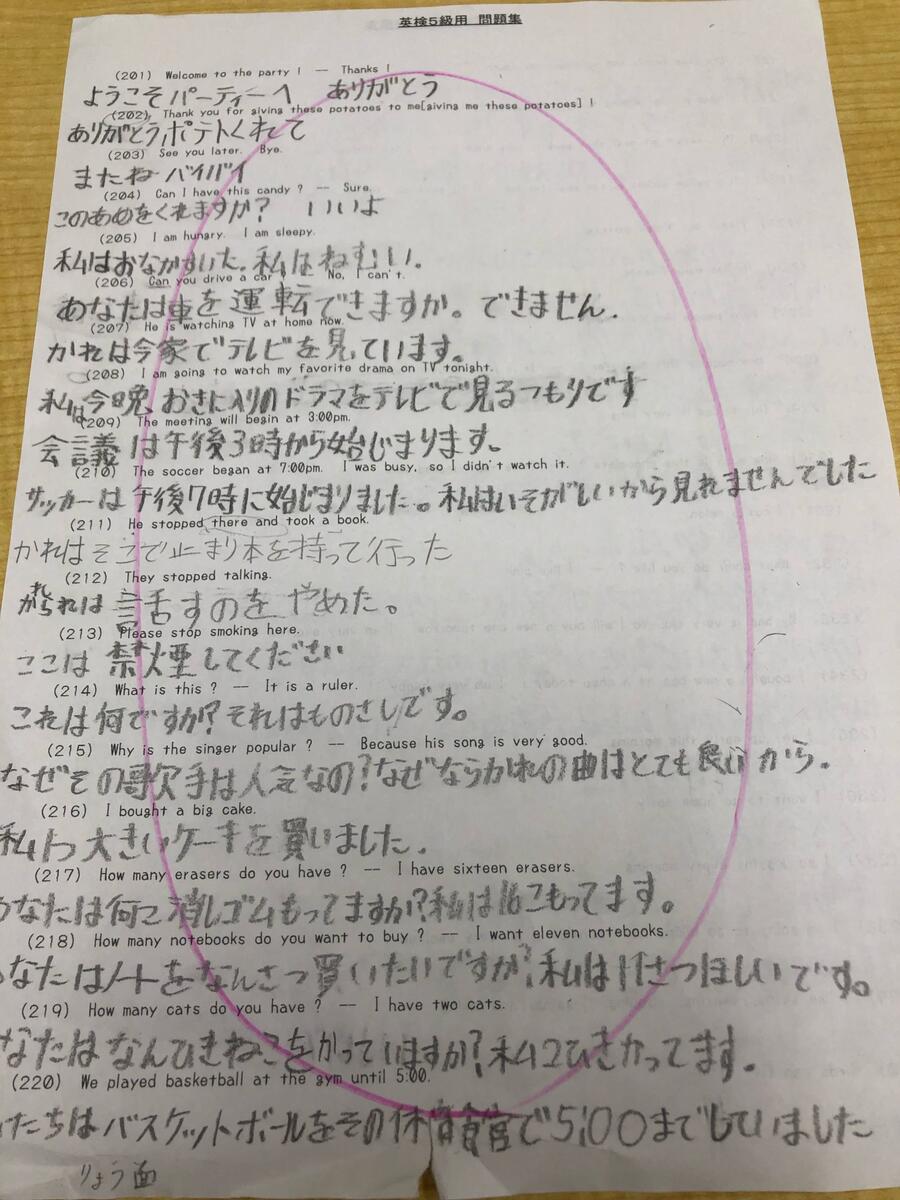 英検5級用 問題集
(201) Welcome to the party ! -- Thanks !
ようこそパーティーへ ありがとう
(202) Thank you for giving these potatoes to me[giving me these potatoes] !
ありがとうポテトくれて
(203) See you later. Bye.
またね バイバイ
(204) Can I have this candy ? -- Sure.
このあめをくれますか? いいよ
(205) I am hungry. I am sleepy.
私はおなかすいた。私はねむいい。
(206) Can you drive a car ? -- No, I can't.
あなたは車を運転できますか。できません.
(207) He is watching TV at home now.
かれは今家でテレビを見ています。
(208) I am going to watch my favorite drama on TV tonight.
私は今晩、おきに入りのドラマをテレビで見るつもりです
(209) The meeting will begin at 3:00pm.
会議は午後3時から始じまります。
(210) The soccer began at 7:00pm. I was busy, so I didn't watch it.
サッカーは午後7時に始じまりました。私はいそがしいから見れませんでした
(211) He stopped there and took a book.
かれはそこで止まり本を持って行った
(212) They stopped talking.
かれられは 話すのをやめた。
(213) Please stop smoking here.
ここは禁煙してください
(214) What is this ? -- It is a ruler.
これは何ですか?それはものさしです。
(215) Why is the singer popular ? -- Because his song is very good.
なぜその歌手は人気なの?なぜならかれの曲はとても良いから。
(216) I bought a big cake.
私は 大きいケーキを買いました.
(217) How many erasers do you have ? -- I have sixteen erasers.
なたは何こ消しゴムもってますか?私は16こもってます。
(218) How many notebooks do you want to buy ? -- I want eleven notebooks.
なたはノートをなんさつ買いたいですか?私は11さつほしいです。
(219) How many cats do you have ? -- I have two cats.
なたはなんひきねこをかっていますか?私2ひきかってます。
(220) We played basketball at the gym until 5:00.
たちはバスケットボールをその体育館で5:00までしていました
りょう面